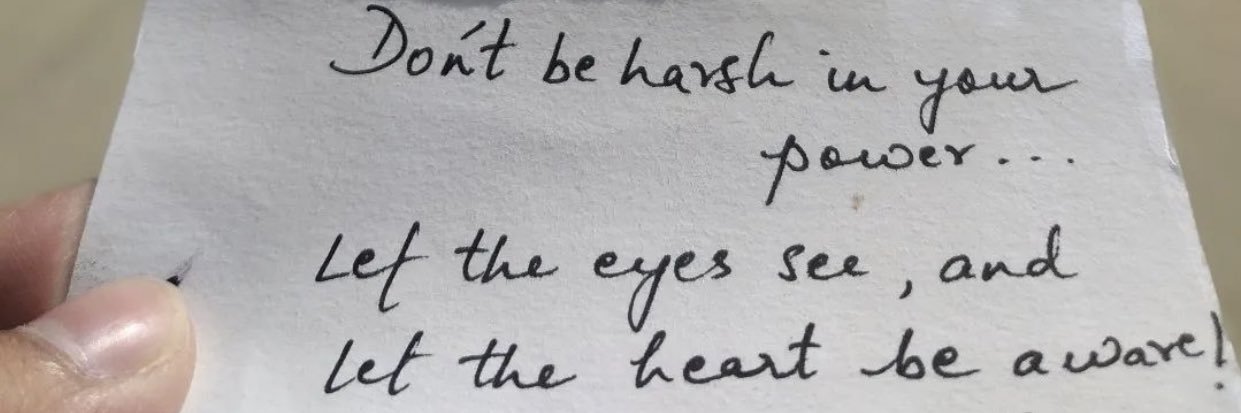 Don't be harsh in your
power...
Let the eyes see, and
let the heart be aware!